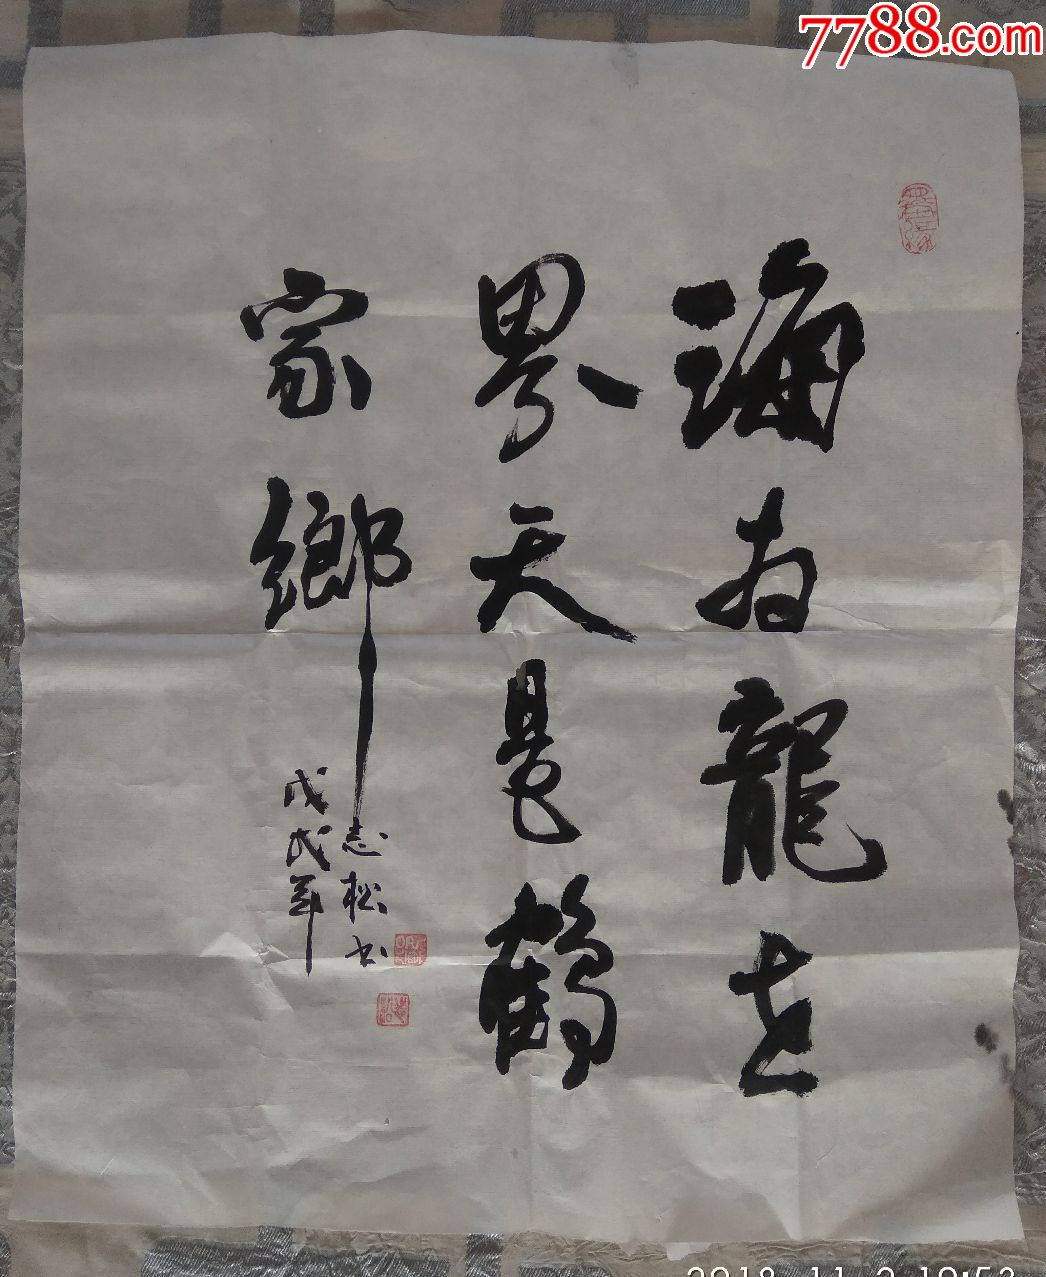 海为龍世
界天是鹤
家鄉
志松书
戊戌年
7788.com
2018-11-2 10:53